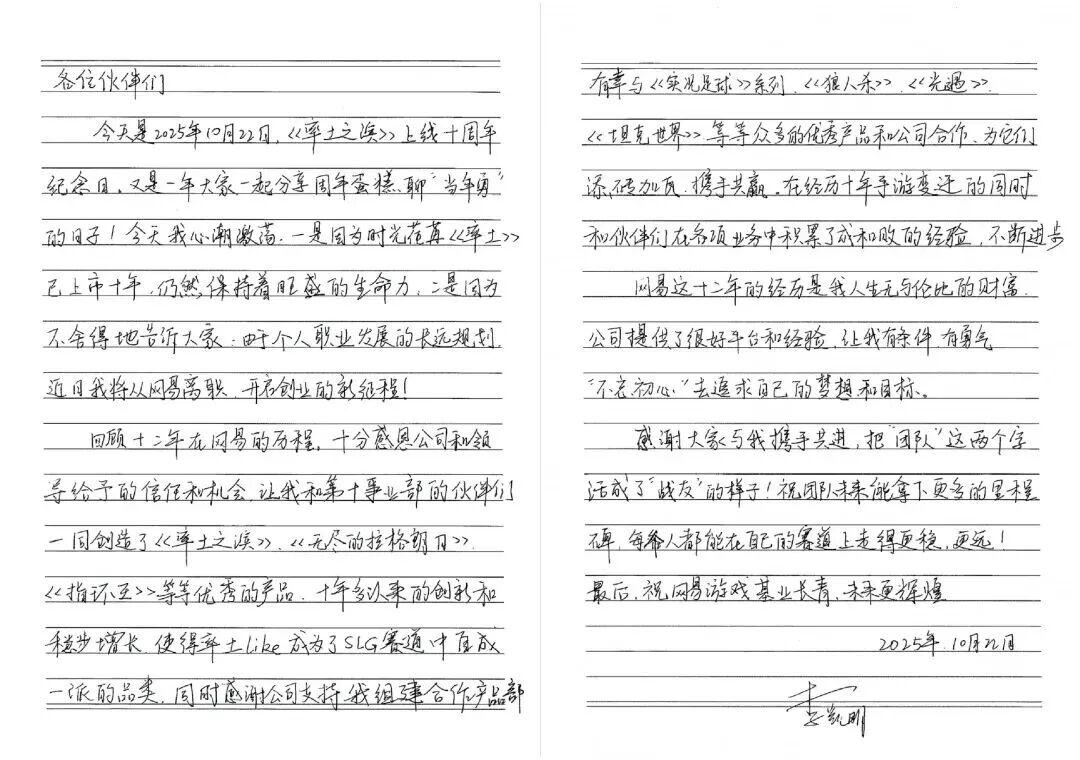 各位伙伴们
今天是2025年10月22日,《率土之滨》上线十周年
纪念日,又是一年大家一起分享周年蛋糕、聊“当年勇”
的日子!今天我心潮激荡,一是因为时光荏苒《率土》
已上市十年,仍然保持着旺盛的生命力,二是因为
不舍得地告诉大家,由于个人职业发展的长远规划,
近日我将从网易离职,开启创业的新征程!
回顾十二年在网易的历程,十分感恩公司和领
导给予的信任和机会,让我和第十事业部的伙伴们
一同创造了《率土之滨》、《无尽的拉格朗日》、
《指环王》等等优秀的产品,十年多以来的创新和
稳步增长,使得率土like成为了SLG赛道中自成
一派的品类,同时感谢公司支持我组建合作产品部
有幸与《实况足球》系列、《狼人杀》、《光遇》、
《坦克世界》等等众多的优秀产品和公司合作,为它们
添砖加瓦,携手共赢。在经历十年手游变迁的同时
和伙伴们在各项业务中积累了成和败的经验,不断进步
网易这十二年的经历是我人生无与伦比的财富,
公司提供了很好平台和经验,让我有条件,有勇气
“不忘初心”去追求自己的梦想和目标。
感谢大家与我携手共进,把“团队”这两个字
活成了“战友”的样子!祝团队未来能拿下更多的里程
碑,每个人都能在自己的赛道上走得更稳,更远!
最后,祝网易游戏基业长青,未来更辉煌
2025年10月22日
李凯明